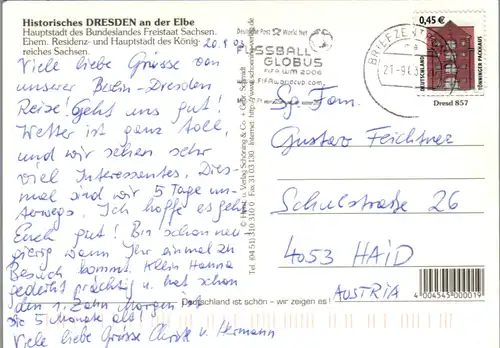 Historisches DRESDEN an der Elbe
Hauptstadt des Bundeslandes Freistaat Sachsen.
Ehem. Residenz- und Hauptstadt des König-
reiches Sachsen.
20.9.03
Viele liebe Grüsse von
unserer Berlin-Dresden
Reise! Gehts uns gut!
Wetter ist ganz toll,
und wir sehen sehr
viel Interessantes. Dies-
mal sind wir 5 Tage un-
terwegs. Ich hoffe es geht
Euch gut! Bin schon neu-
gierig wann Ihr einmal zu
Besuch kommt. Klein Hanna
gedeiht prächtig u. hat schon
den 1. Zahn. Morgen
die 5 Monate alt!
Viele liebe Grüsse Christl u. Hermann
© Horst u. Verlag Schöning & Co. + Gebr. Schmidt
Tel. (04 51) 3 10 31 0 Fax 3 10 31 30
Deutsche Post World Net
FUSSBALL
GLOBUS
FIFA WM 2006
FIFAworldcup.com
BRIEFZENT
21-9.03
0,45 €
DEUTSCHLAND
TÖNNINGER PACKHAUS
Dresd 857
Sg. Fam.
Gustav Feichtner
Schulstraße 26
4053 HAID
AUSTRIA
Deutschland ist schön – wir zeigen es!
4 004545 000019